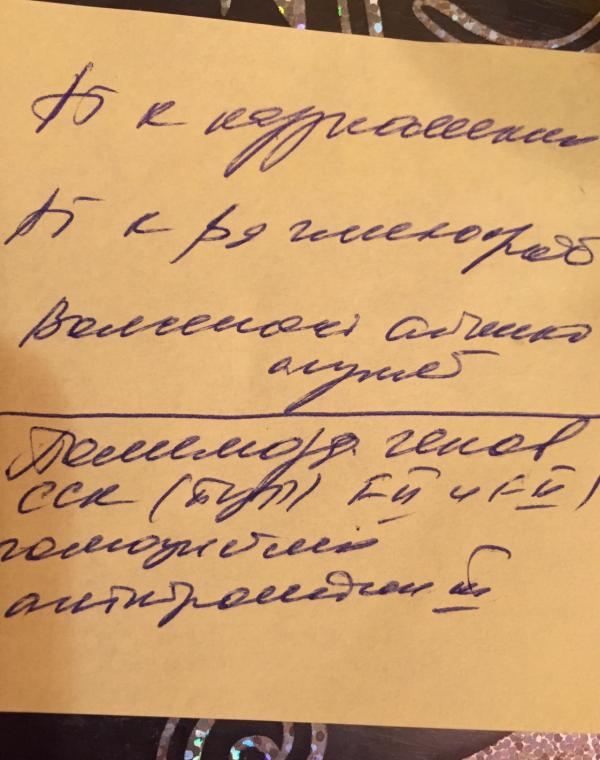 АТ к кардиолипин
АТ к β2 гликопрот
Волчаночн антико
агулянт
Полиморф. генов
ССК (
гомоцистеин
антитромбин III